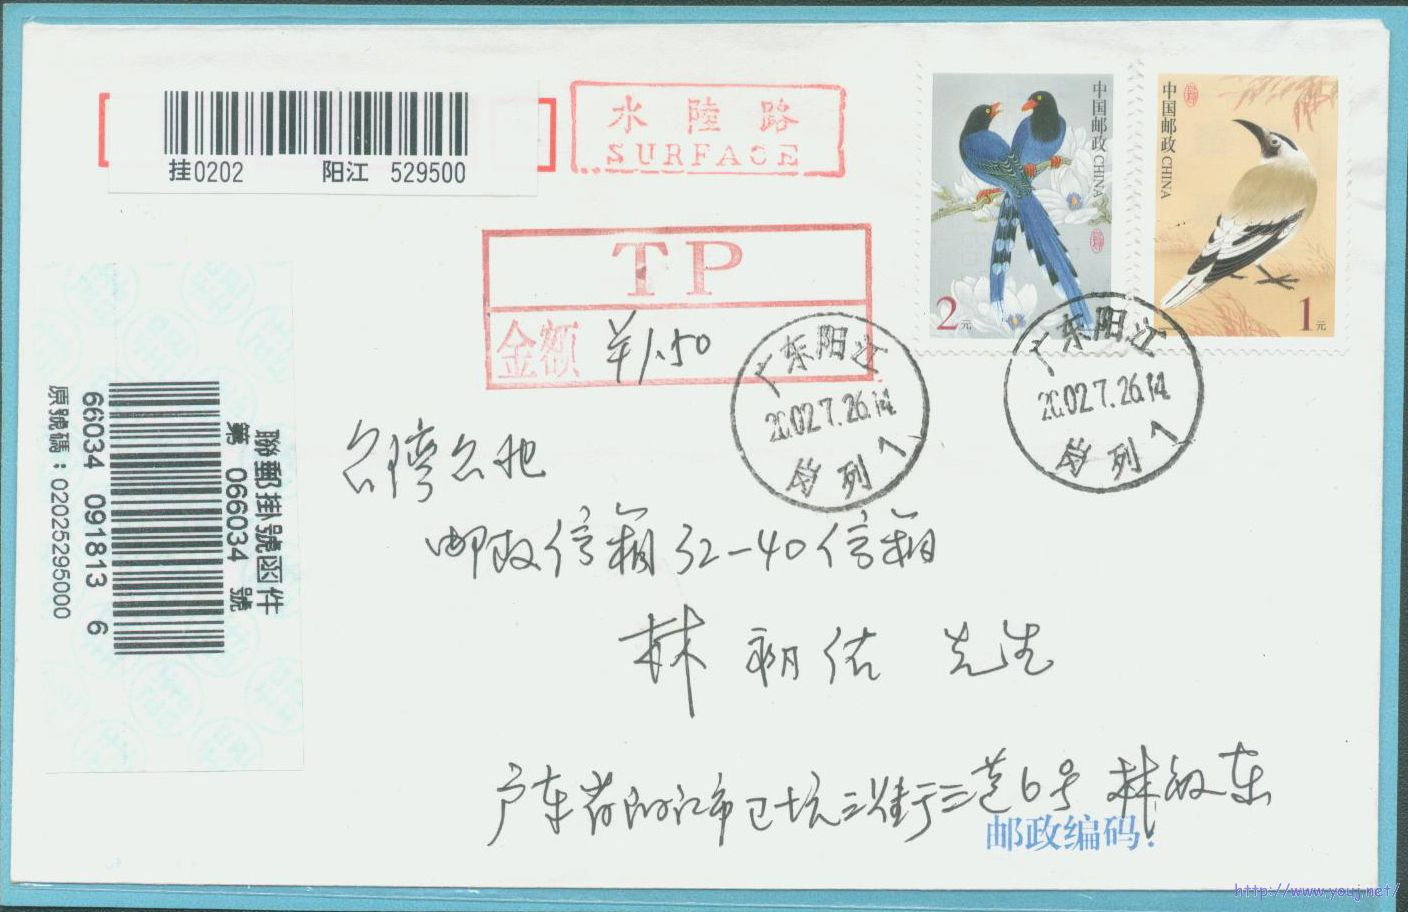 挂0202 阳江 529500
水陸路
SURFACE
中国邮政 CHINA
2元
中国邮政 CHINA
1元
TP
金额 ¥1.50
广东阳江
2002.7.26.14
岗列 1
广东阳江
2002.7.26.14
岗列 1
聯郵掛號函件
第 066034 號
66034 091813 6
原號碼：0202529500
台湾台北
邮政信箱32-40信箱
林朝佑 先生
广东省阳江市 三街三巷6号 林敏东
邮政编码：
http://www.youj.net/